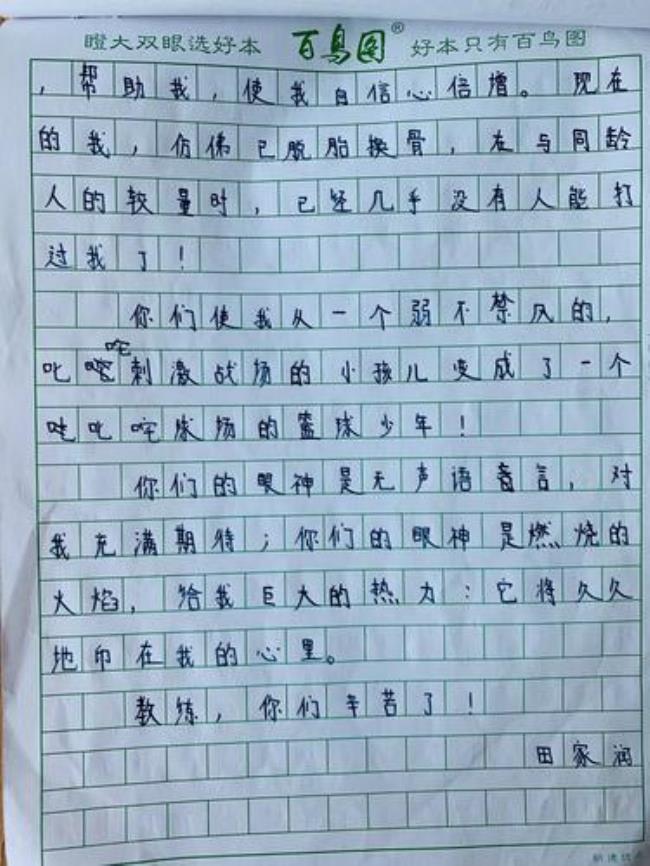 瞪大双眼选好本 百鸟图® 好本只有百鸟图
，帮助我，使我自信心倍增。现在
的我，仿佛已脱胎换骨，在与同龄
人的较量时，已经几乎没有人能打
过我了！
你们使我从一个弱不禁风的，
咤
叱刺激战场的小孩儿变成了一个
叱咤球场的篮球少年！
你们的眼神是无声语言，对
我充满期待；你们的眼神是燃烧的
火焰，给我巨大的热力：它将久久
地印在我的心里。
教练，你们辛苦了！
田家润